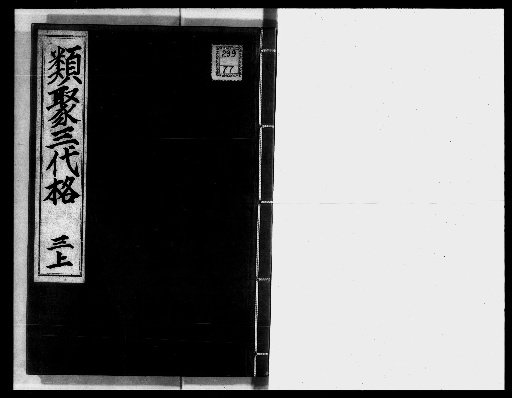 類聚三代格
三上
299
77